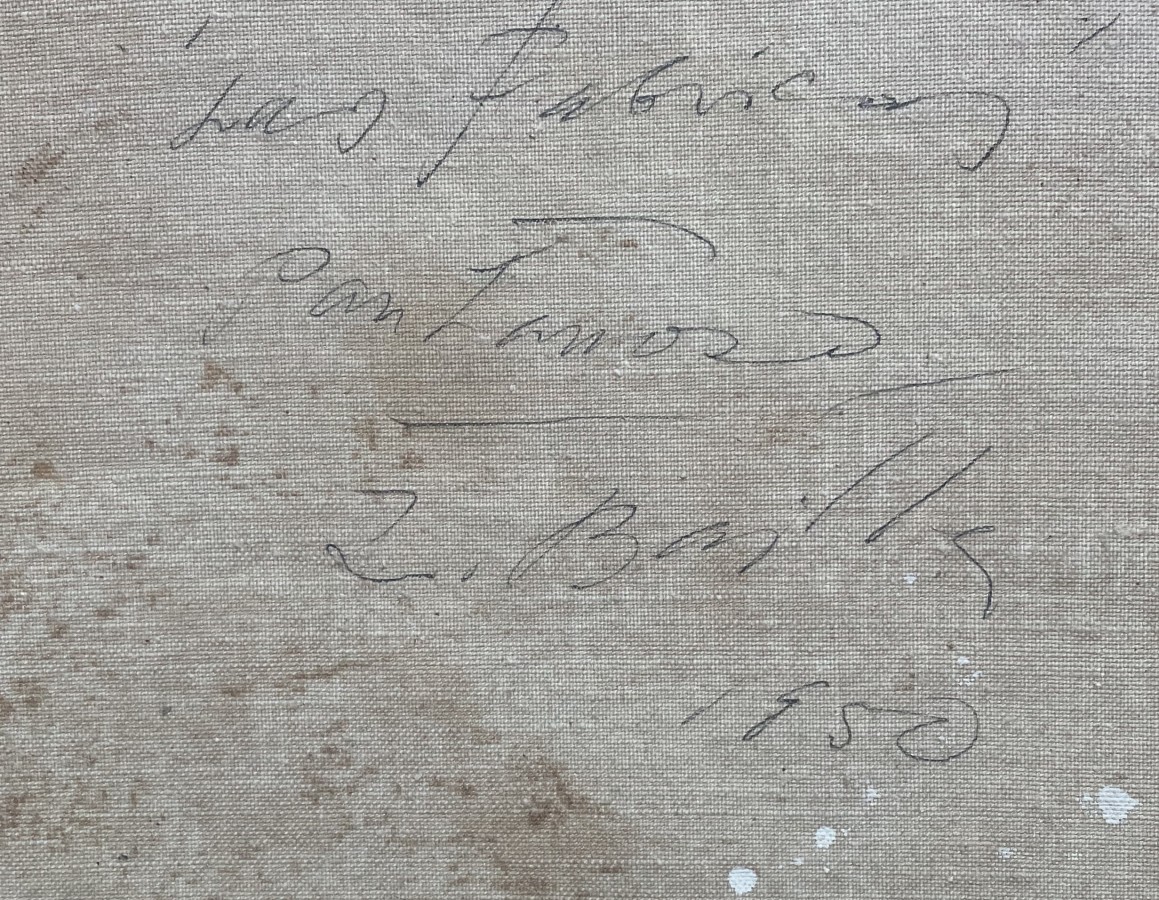 Las Fabricas
Pantanos
L. Bailly
1950